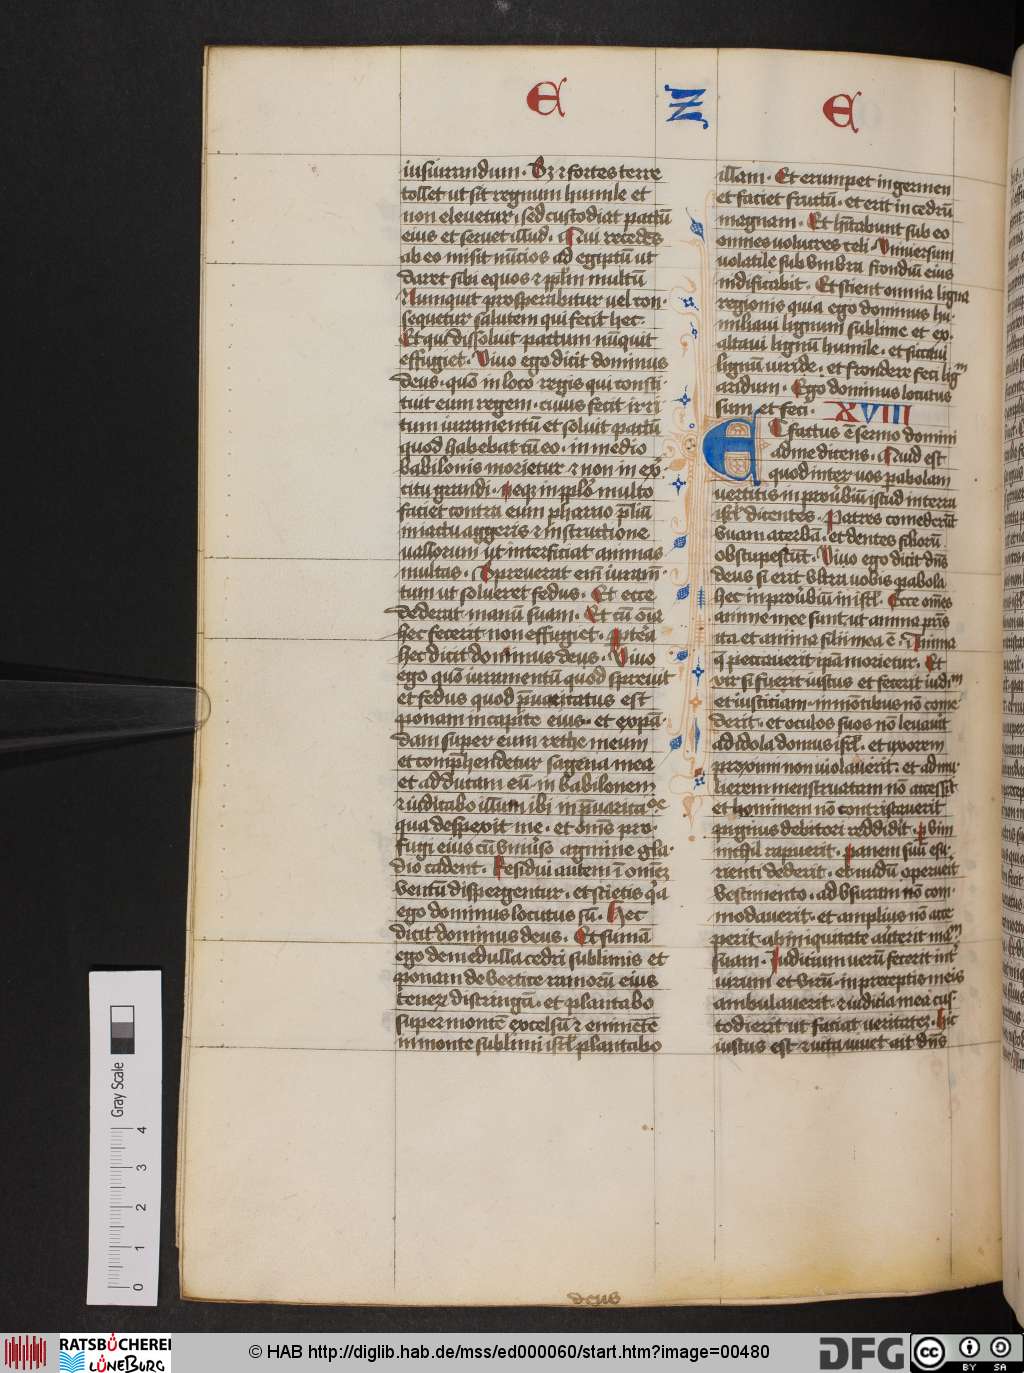 E Z E
iusiurandum · Sz ⁊ fortes terre
tollet ut sit regnum humile et
non eleuetur · sed custodiat pactū
eius et seruet illud · Qui recedēs
ab eo misit nūcios ad egiptū ut
daret sibi equos ⁊ pplm̄ multū
Nunquit prosperabitur uel con-
sequetur salutem qui fecit hec ·
Et qui dissoluit pactum nūquit
effugiet · Viuo ego dicit dominus
deus · quō in loco regis qui consti-
tuit eum regem · cuius fecit irri
tum iuramentū et soluit pactū
quod habebat cū eo · in medio
babilonis morietur ⁊ non in ex̄
citu grandi · Neqz in pplo multo
faciet contra eum pharao p̄liū
in iactu aggeris ⁊ instructione
uallorum ut interficiat animas
multas · Spreuerat em̄ iuram-
tum ut solueret fedus · Et ecce
dederat manū suam · Et cū oīa
hec fecerit non effugiet · Ppterea
hec dicit dominus deus · Viuo
ego quō iuramentū quod spreuit
et fedus quod p̄uaricatus est
ponam in capite eius · et expā-
dam super eum rethe meum
et comp̄hendetur sagena mea
et adducam eū in babilonem
⁊ iudicabo illum ibi in p̄uaricaōe
qua despexit me · et om̄s pro-
fugi eius cū vniuso agmine gla-
dio cadent · Residui autem ī omēz
ventū dispergentur · et scietis qa
ego dominus locutus sū · Hec
dicit dominus deus · Et sumā
ego de medulla cedri sublimis et
ponam de vertice ramorū eius
tenerz distringā · et plantabo
super montē excelsū ⁊ eminētē
in monte sublimi isrl̄ plantabo
illam · Et erumpet in germen
et faciet fructū · et erit in cedrū
magnam · Et hītabunt sub eo
omnes volucres celi · Vniuersum
uolatile sub vmbra frondiū eius
nidificabit · Et scient omnia ligna
regionis quia ego dominus hu-
miliaui lignum sublime et ex-
altaui lignū humile · et siccaui
lignū uiride · et frondere feci lig͞m
aridum · Ego dominus locutus
sum et feci · XVIII
Et factus ē sermo domini
ad me dicens · Quid est
quod inter uos pabolam
uertitis in prouībiū istud in terra
isrl̄ dicentes · Patres comederūt
vuam acerbā · et dentes filiorū
obstupescūt · Viuo ego dicit dn̄s
deus si erit vltra uobis pabola
hec in proūbiū in isrl̄ · Ecce om̄es
anime mee sunt · ut anima pr̄is
ita et anima filii mea ē · Anima
q̄ peccauerit ipā morietur · Et
vir si fuerit iustus et fecerit iud͞m
et iusticiam · in mōtibus nō come
derit · et oculos suos nō leuauit
ad idola domus isrl̄ · et uxorem
proximi non uiolauerit · et ad mu-
lierem menstruatam nō accessit
et hominem nō contristauerit
pignus debitori reddidit · p vim
nichil rapuerit · Panem suū esu-
rienti dederit · et nudū operuerit
vestimento · ad vsuram nō com-
modauerit · et amplius nō acce
perit · ab iniquitate auterit ma͞m
suam · Iudicium uerū fecerit int
uirum et virū · in preceptis meis
ambulauerit · ⁊ iudicia mea cus-
todierit ut faciat ueritatez · Hic
iustus est ⁊ uita uiuet ait dn̄s
deus
Gray Scale
4
3
2
1
0
RATSBÜCHEREI
LÜNEBURG
© HAB http://diglib.hab.de/mss/ed000060/start.htm?image=00480
DFG
cc BY SA